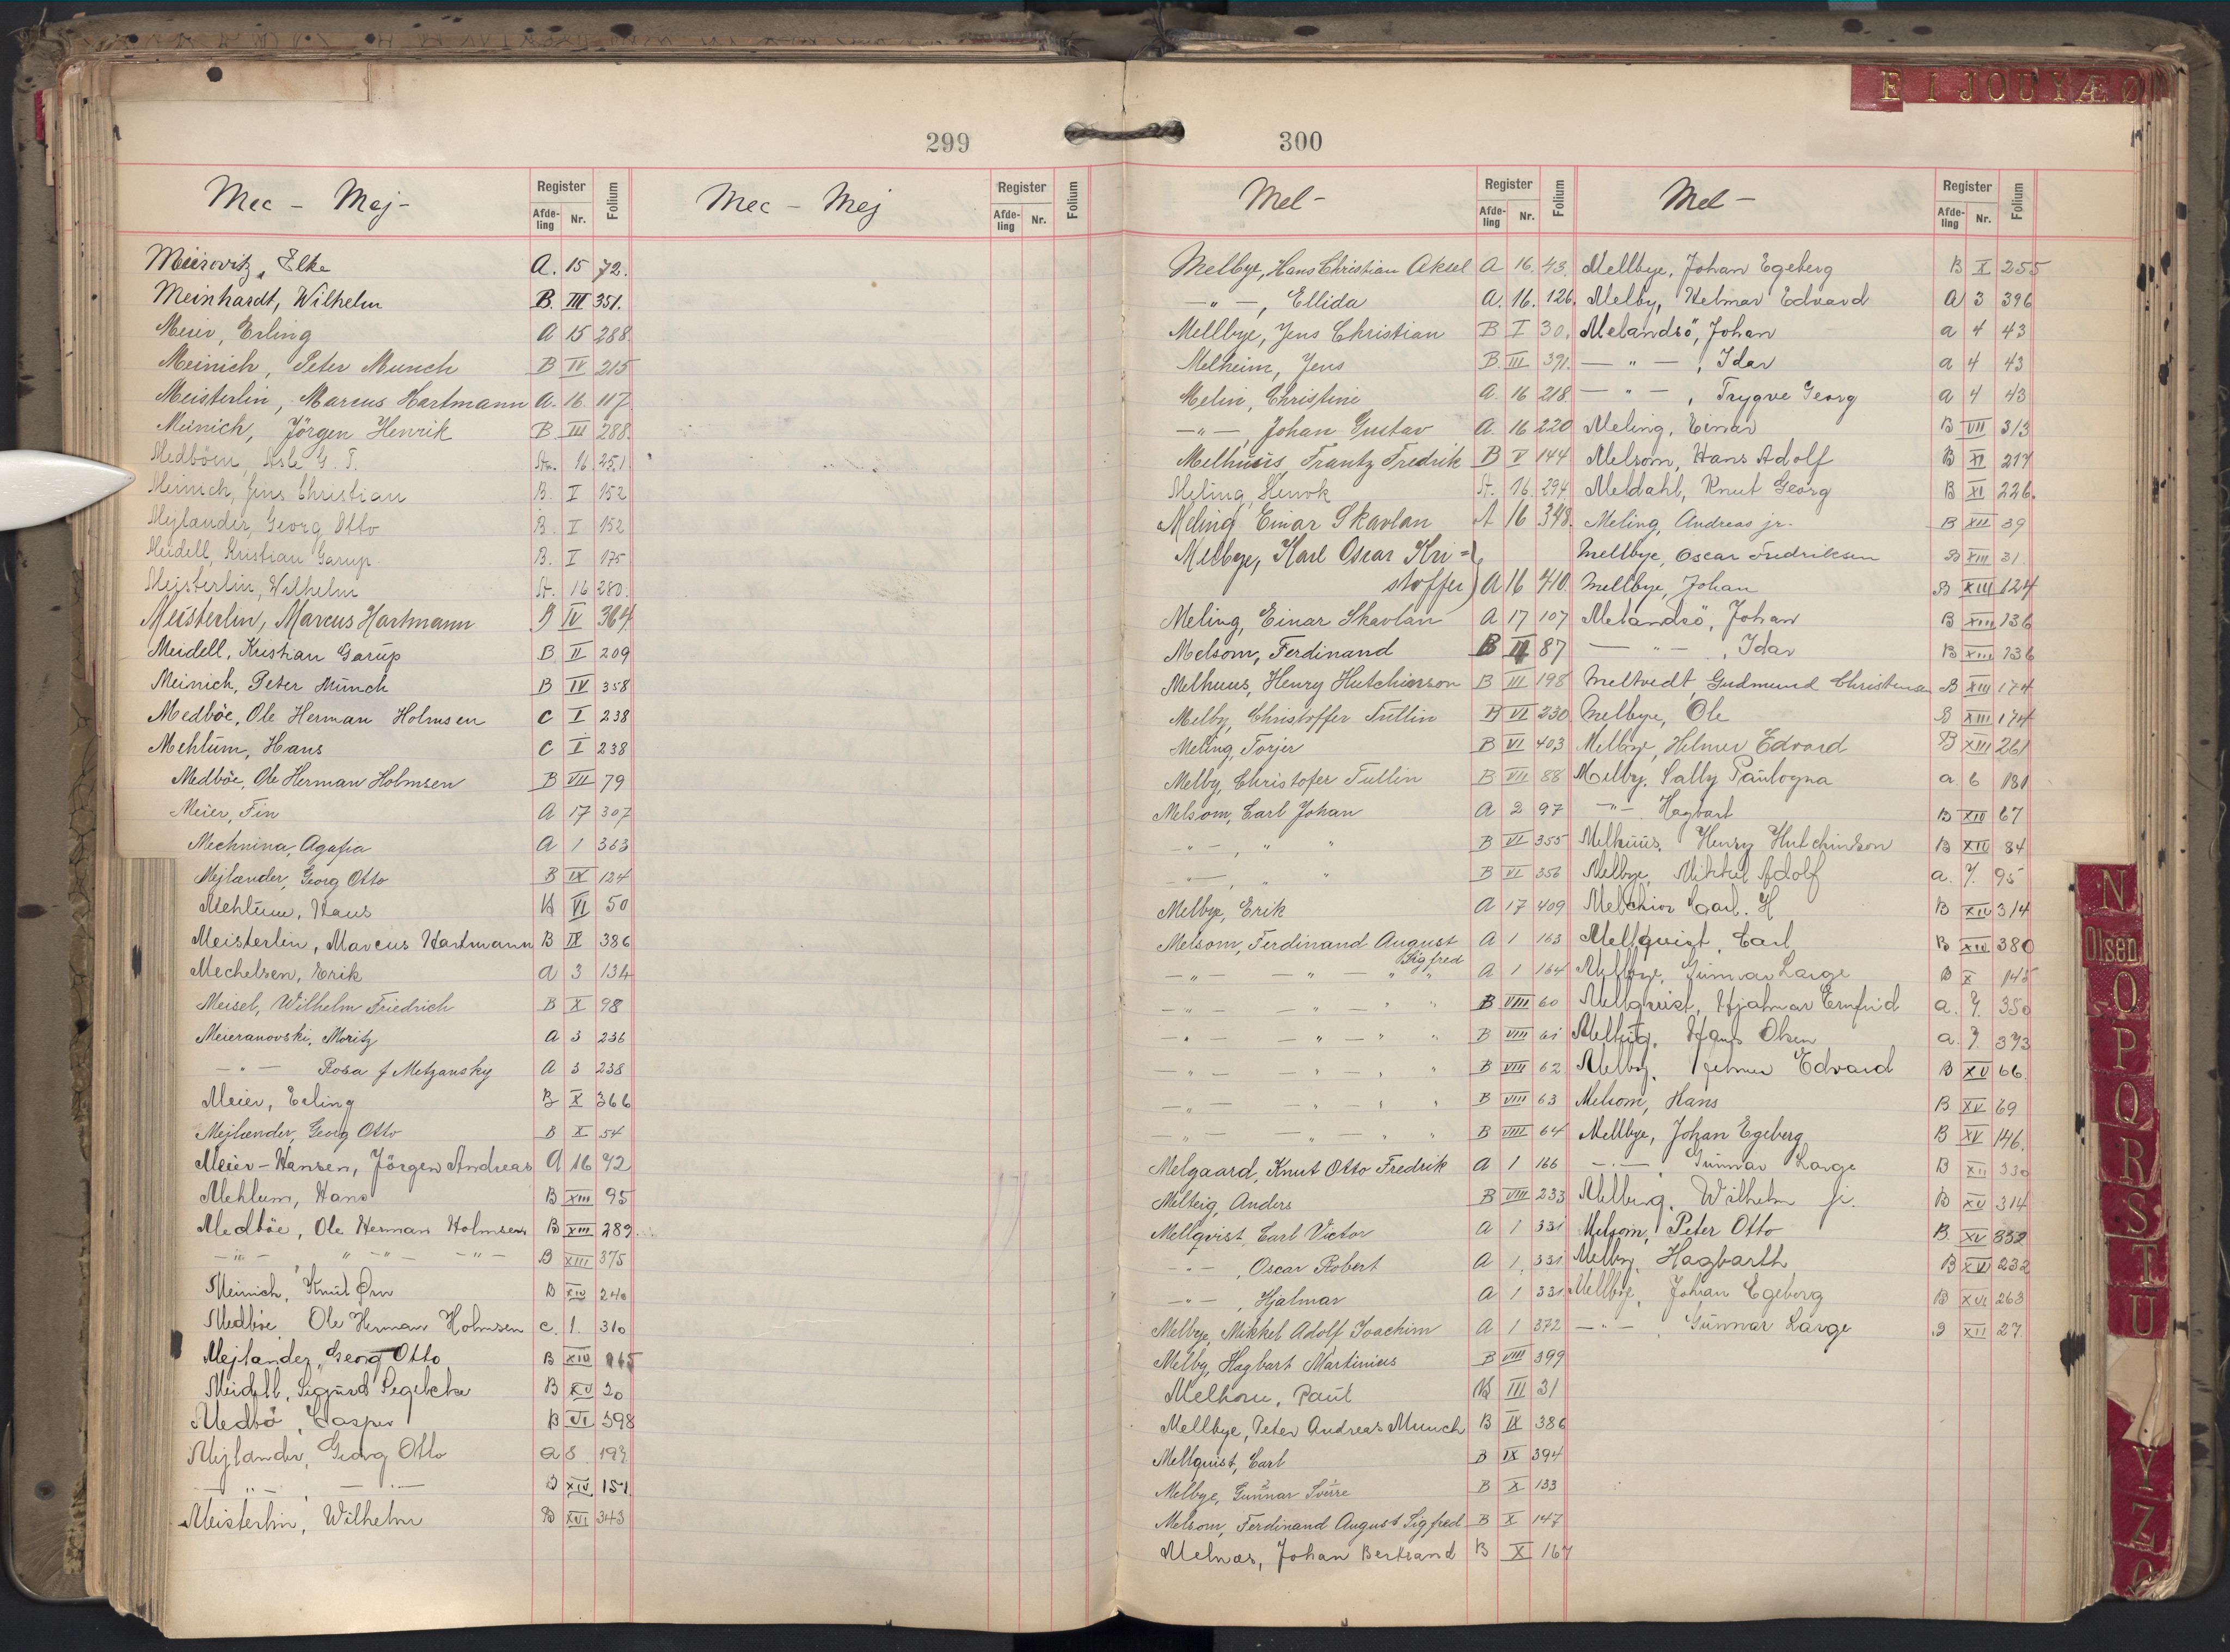 E I J O U Y Æ Ø
299
Mec - Mej-
Register
Afde-ling Nr. Folium
Mec - Mej
Register
Afde-ling Nr. Folium
Meirovitz, Elke A. 15 72.
Meinhardt, Wilhelm B. III 351.
Meier, Erling A 15 288.
Meinich, Peter Munch B IV 215
Meisterlin, Marcus Hartmann A. 16. 117.
Meinich, Jörgen Henrik B. III 288.
Medböen, Asle G. T. 16 251
Meinich, Jens Christian B. I 152
Mejlander, Georg Otto B. I 152
Meidell, Kristian Garup. B. I 175
Meisterlin, Wilhelm St. 16 280.
Meisterlin, Marcus Hartmann B IV 364
Meidell, Kristian Garup B II 209
Meinich, Peter Munch B IV 358
Medböe, Ole Herman Holmsen C I 238
Mehlum, Hans C I 238
Medböe, Ole Herman Holmsen B VII 79
Meier, Fin A 17 307
Mechnina, Agafia A 1 363
Mejlænder, Georg Otto B IX 124
Mehlum, Hans B VI 50
Meisterlin, Marcus Hartmann B IX 386
Mechelsen, Erik a 3 134
Meisel, Wilhelm Friedrich B X 98
Meieranovski, Moritz A 3 236
— " — Rosa f Metzansky A 3 238
Meier, Erling B X 366
Mejlænder, Georg Otto B X 54
Meier-Hansen, Jörgen Andreas A 16 72
Mehlum, Hans B XIII 95
Medböe, Ole Herman Holmsen B XIII 289
— " — " — " — — " — B XIII 375
Meinich, Knut Ørn B XIV 240
Medböe, Ole Herman Holmsen C. 1. 310
Mejlander, Georg Otto B XIV 165
Meidell, Sigurd B XV 20
Medbö, Casper B VI 398
Mejlander, Georg Otto a 8 193
— " — — " — B XIV 151
Meisterlin, Wilhelm B XVI 343
300
Mel-
Register
Afde-ling Nr. Folium
Melbye, Hans Christian Aksel A 16. 43.
— " —, Ellida A. 16. 126.
Mellbye, Jens Christian B I 30.
Melheim, Jens B. III 391.
Melin, Christine A. 16 218
— " —, Johan Gustav A. 16 220
Melhuus, Frantz Fredrik B V 144
Meling, Henrik St. 16. 294.
Meling, Einar Skavlan A 16 348.
Melbye, Karl Oscar Kri=
stoffer A 16 410.
Meling, Einar Skavlan A 17 107
Melsom, Ferdinand B II 87
Melhuus, Henry Hutchinson B III 198
Melby, Christoffer Tullin B VI 230
Meling, Torjer B VI 403
Melby, Christofer Tullin B VII 88
Melsom, Carl Johan A 2 97
— " —, " " B VI 355
— " —, " " B VI 356
Melbye, Erik A 17 409
Melsom, Ferdinand August Sigfred A 1 163
— " — — " — " " A 1 164
— " — — " — " " B VIII 60
— " — — " — " " B VIII 61
— " — — " — " " B VIII 62
— " — — " — " " B VIII 63
— " — — " — " " B VIII 64
Melgaard, Knut Otto Fredrik A 1 166
Melteig, Anders B VIII 233
Mellqvist, Carl Victor A 1 331
— " —, Oscar Robert A 1 331
— " —, Hjalmar A 1 331
Melbye, Mikkel Adolf Joachim A 1 372
Melby, Hagbart Martinius B VIII 399
Melhorn, Paul B III 31
Mellbye, Peter Andreas Munch B IX 386
Mellquist, Carl B IX 394
Melbye, Gunnar Sverre B X 133
Melsom, Ferdinand August Sigfred B X 147
Melnæs, Johan Bertrand B X 167
Mel —
Register
Afde-ling Nr. Folium
Mellbye, Johan Egeberg B X 255
Melby, Helmar Edvard A 3 396
Melandsö, Johan a 4 43
— " —, Idar a 4 43
— " —, Trygve Georg a 4 43
Meling, Einar B VII 313
Melsom, Hans Adolf B XI 217
Meldahl, Knut Georg B XI 226.
Meling, Andreas jr. B XII 39
Mellbye, Oscar Fredriksen B XIII 31
Mellbye, Johan B XIII 124
Melandsö, Johan B XIII 136
— " —, Idar B XIII 136
Meltvedt, Gudmund Christensen B XIII 174
Melbye, Ole B XIII 174
Melbye, Helmer Edvard B XIII 261
Melby, Sally Paulogna a 6 181
— " — Hagbart B XIV 67
Melhuus, Henry Hutchinson B XIV 84
Melbye, Mikkel Adolf a. 7. 95
Melchior Carl. H B XIV 314
Mellquist, Carl B XIV 380
Mellbye, Gunnar Lange B X 145
Mellquist, Hjalmar Ernfrid a. 7. 350
Melbye, Hans Olsen a. 7. 373
Melby, Helmer Edvard B XV 66
Melsom, Hans B XV 69
Mellbye, Johan Egeberg B XV 146.
— " — , Gunnar Lange B XII 330
Melberg, Wilhelm jr. B XV 314
Melsom, Peter Otto B. XV 332
Melby, Hagbarth B XVI 232
Mellbye, Johan Egeberg B XVI 263
— " — , Gunnar Lange B XII 27
N
Olsen
O
P
Q
R
S
T
U
Y
Z